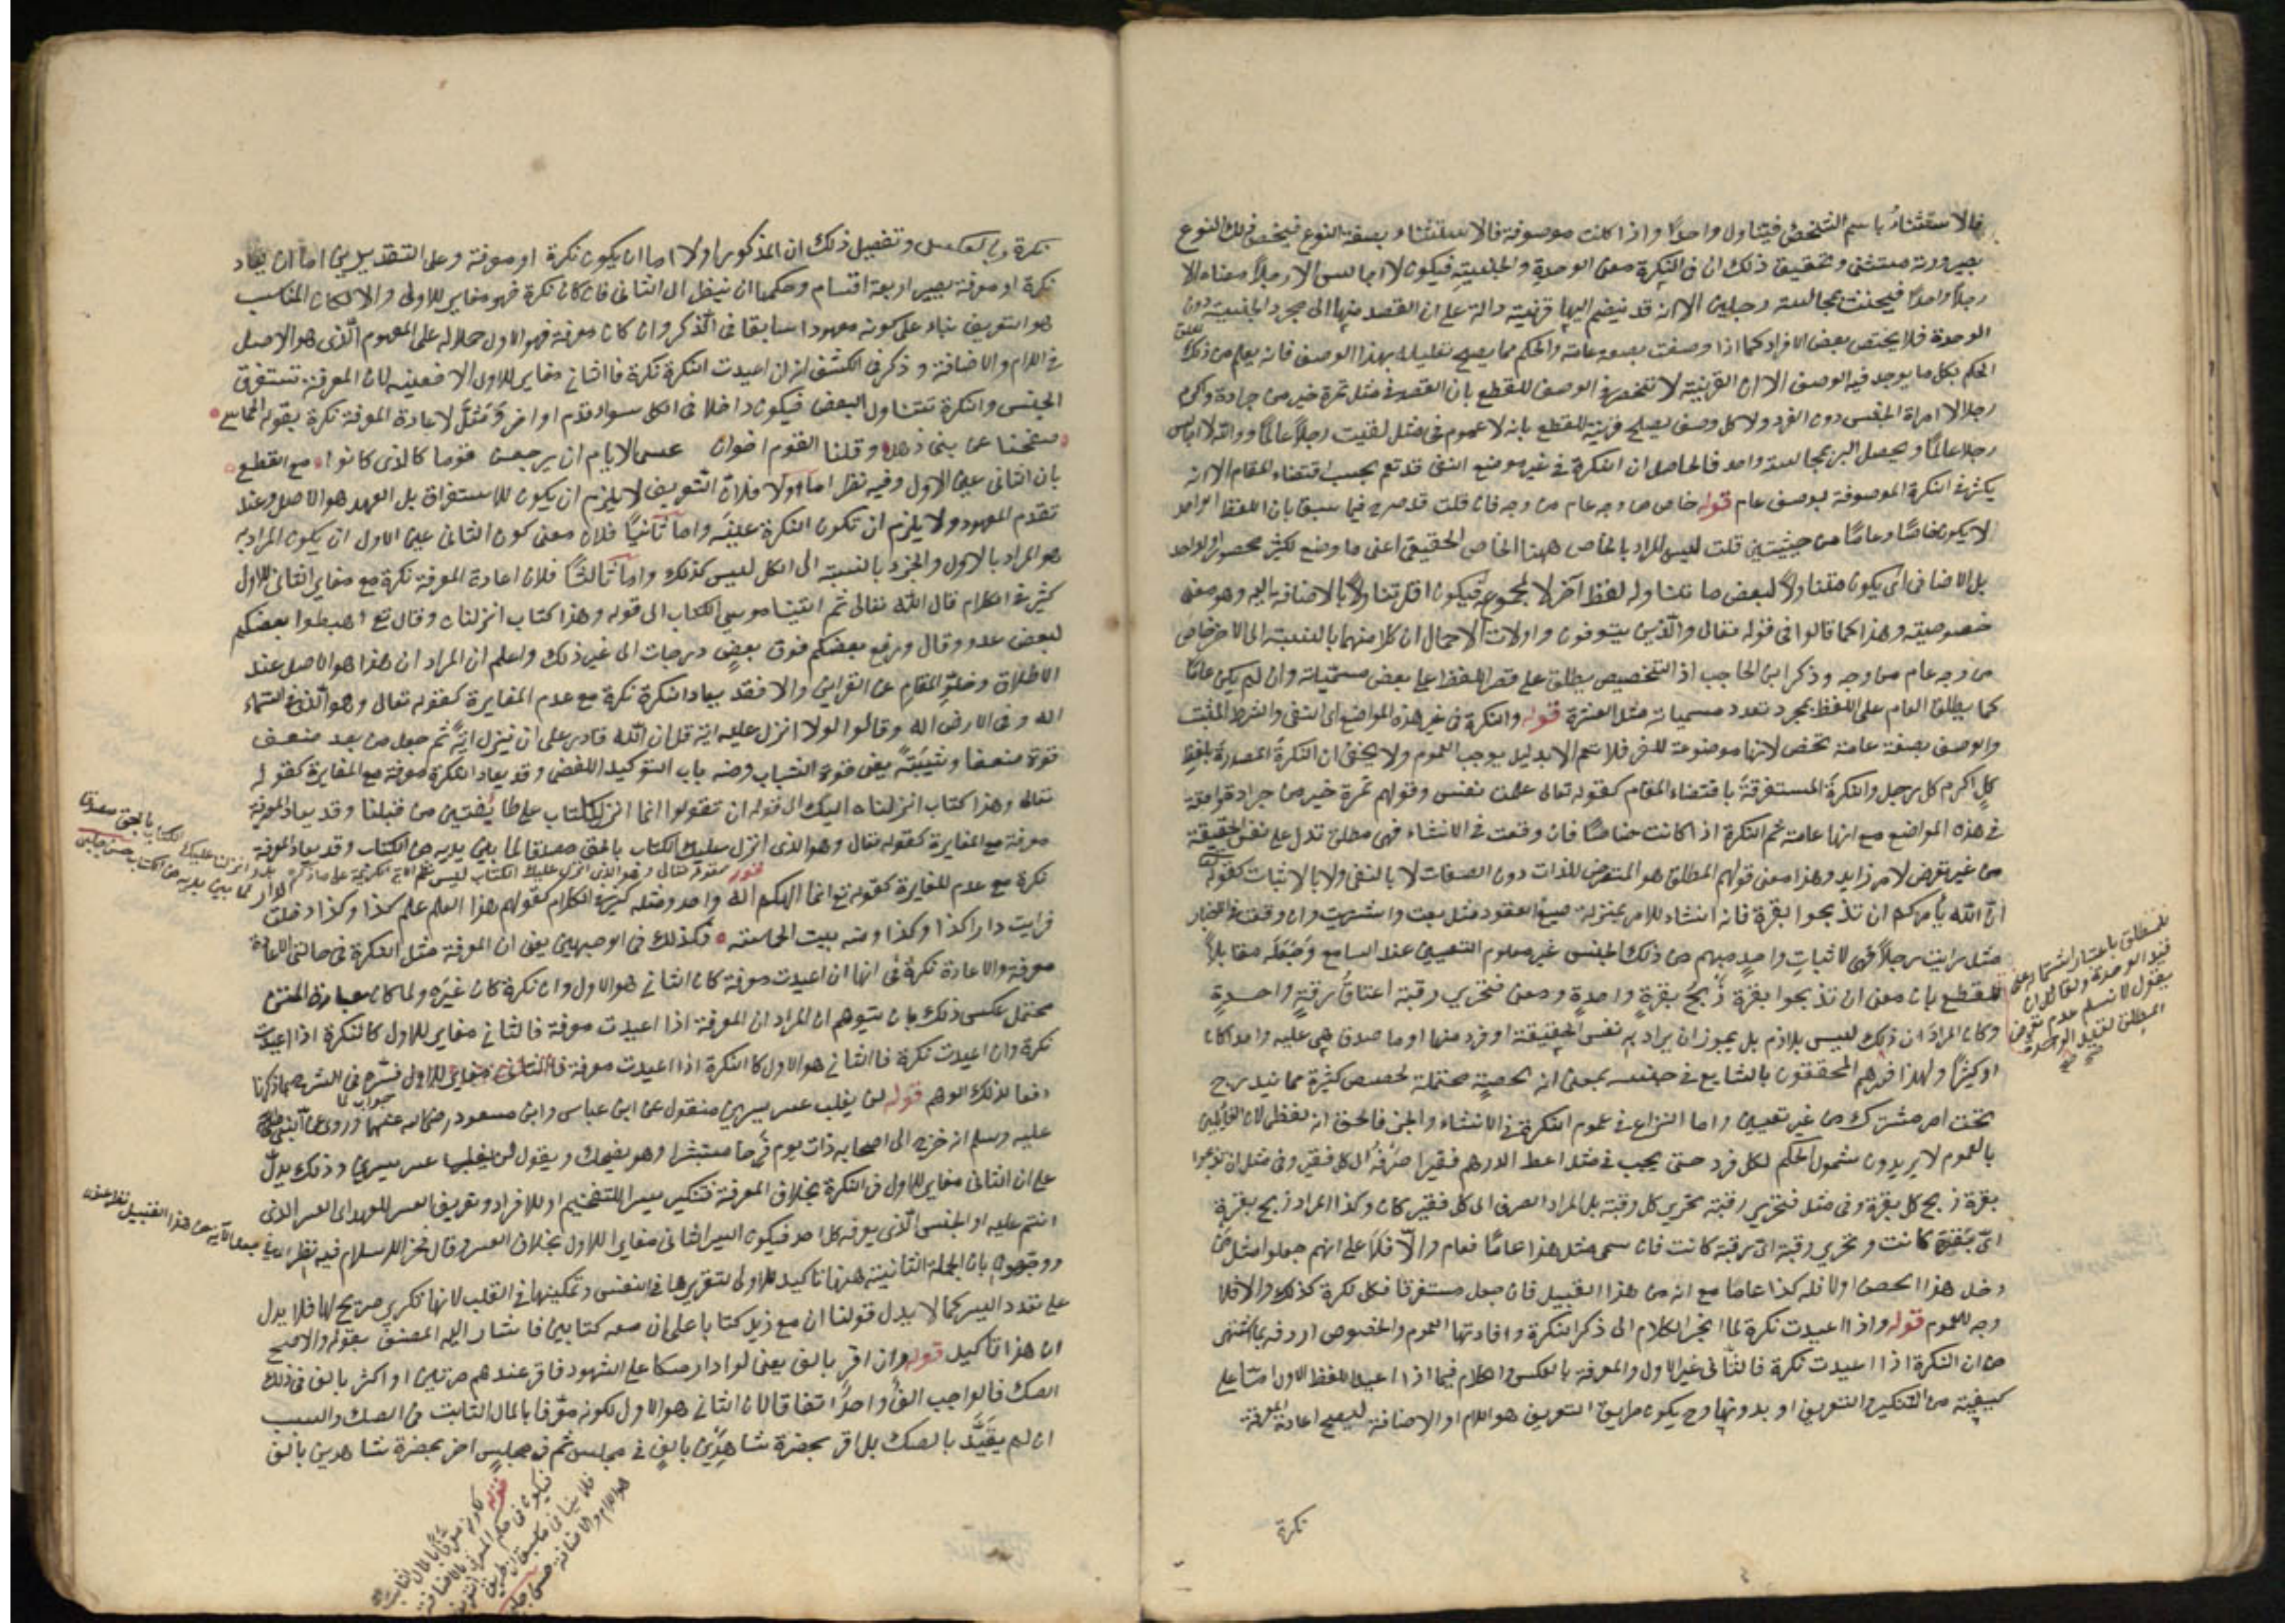 فالاستثناء باسم الشخص فيتناول واحدا واذا كانت موصوفة فالاستثناء بصفة النوع فيختص ذلك النوع
بصيرورته مستثنى وتحقيق ذلك ان في النكرة معنى الوحدة والجنسية فيكون لا اجالس الا رجلا معناه الا
رجلا واحدا فيحنث بمجالسة رجلين الا انه قد ينضم اليها قرينة دالة على ان القصد منها الى مجرد الجنسية دون
الوحدة فلا يختص بعض الافراد كما اذا وصفت بصفة عامة والحكم مما يصح تعليله بهذا الوصف فانه يعلم من ذلك تعلق
الحكم بكل ما يوجد فيه الوصف الا ان القرينة لا تنحصر في الوصف للقطع بان القصد في مثل تمرة خير من جرادة واكرم
رجلا لا امراة الجنس دون الفرد ولا كل وصف يصلح قرينة للقطع بانه لا عموم في مثل لقيت رجلا عالما ووالله لاجالسن
رجلا عالما ويحصل البر بمجالسة واحد فالحاصل ان النكرة في غير موضع النفي قد تعم بحسب اقتضاء المقام الا انه
يكثر في النكرة الموصوفة بوصف عام قوله خاص من وجه عام من وجه فان قلت قد صرح فيما سبق بان اللفظ الواحد
لا يكون خاصا وعاما من حيثيتين قلت ليس المراد بالخاص ههنا الخاص الحقيقي اعني ما وضع لكثير محصور او لواحد
بل الاضافي اي يكون متناولا لبعض ما تناوله لفظ آخر لا لمجموعه فيكون اقل تناولا بالاضافة اليه وهو معنى
خصوصيته وهذا كما قالوا في قوله تعالى والذين يتوفون واولات الاحمال ان كلا منهما بالنسبة الى الاخر خاص
من وجه عام من وجه وذكر ابن الحاجب اذ التخصيص يطلق على قصر اللفظ على بعض مسمياته وان لم يكن عاما
كما يطلق العام على اللفظ بمجرد تعدد مسمياته مثل العشرة قوله والنكرة في غير هذه المواضع اي النفي والشرط المثبت
والوصف بصفة عامة تخص لانها موضوعة للفرد فلا تعم الا بدليل يوجب العموم ولا يخفى ان النكرة المصدرة بلفظ
كل اكرم كل رجل والنكرة المستغرقة باقتضاء المقام كقوله تعالى علمت نفس وقولهم تمرة خير من جرادة واقعة
في هذه المواضع مع انها عامة ثم النكرة اذا كانت خاصا فان وقعت في الانشاء فهي مطلق تدل على نفس الحقيقة
من غير تعرض لامر زايد وهذا معنى قولهم المطلق هو المتعرض للذات دون الصفات لا بالنفي ولا بالاثبات كقوله تعالى
ان الله يأمركم ان تذبحوا بقرة فانه انشاء للامر بمنزلة صيغ العقود مثل بعت واشتريت وان وقعت في الاخبار
مثل رايت رجلا فهي لاثبات واحد مبهم من ذلك الجنس غير معلوم التعيين عند السامع وجعله مقابلا
للقطع بان معنى ان تذبحوا بقرة ذبح بقرة واحدة ومعنى فتحرير رقبة اعتاق رقبة واحدة
وكان المراد ان ذلك ليس بلازم بل يجوز ان يراد به نفس الحقيقة او فرد منها او ما صدق هي عليه واحدا كان
او كثيرا ولهذا فسرهم المحققون بالشايع في جنسه بمعنى انه لحصة محتملة لحصص كثيرة مما يندرج
تحت امر مشترك من غير تعيين واما النزاع في عموم النكرة في الانشاء والخبر فالحق انه لفظي لان القائلين
بالعموم لا يريدون شمول الحكم لكل فرد حتى يجب في مثل اعط الدرهم فقيرا صرفه الى كل فقير وفي مثل ان تذبحوا
بقرة ذبح كل بقرة وفي مثل فتحرير رقبة تحرير كل رقبة بل المراد الصرف الى كل فقير كان وكذا المراد ذبح بقرة
اي بقرة كانت وتحرير رقبة اي رقبة كانت فان سمي مثل هذا عاما فعام والا فلا على انهم جعلوا مثل من
دخل هذا الحصن اولا فله كذا عاما مع انه من هذا القبيل فان جعل مستغرقا فكل نكرة كذلك والا فلا
وجه للعموم قوله واذا اعيدت نكرة لما انجر الكلام الى ذكر النكرة وافادتها العموم والخصوص اردفه بما اشتهر
من ان النكرة اذا اعيدت نكرة فالثاني غير الاول والمعرفة بالعكس والكلام فيما اذا اعيد اللفظ الاول اما على
كيفيته من التنكير والتعريف او بدونها وح يكون طريق التعريف هو اللام او الاضافة ليصح اعادة المعرفة
نكرة
للمطلق باعتبار اشتماره على
قيد الوحدة ولقائل ان
يقول لا نسلم عدم تعرض
المطلق لقيد الوحدة
نكرة وبالعكس وتفصيل ذلك ان المذكور اولا اما ان يكون نكرة او معرفة وعلى التقديرين اما ان يعاد
نكرة او معرفة يصير اربعة اقسام وحكمها ان ينظر الى الثاني فان كان نكرة فهو مغاير للاول والا لكان المناسب
هو التعريف بناء على كونه معهودا سابقا في الذكر وان كان معرفة فهو الاول حملا له على المعهود الذي هو الاصل
في اللام والاضافة وذكر في الكشف انه ان اعيدت النكرة نكرة فالثاني مغاير للاول والا فعينه لان المعرفة تستغرق
الجنس والنكرة تتناول البعض فيكون داخلا في الكل سواء قدم او اخر ومثل لاعادة المعرفة نكرة بقوله الحماسي
صفحنا عن بني ذهل وقلنا القوم اخوان عسى الايام ان يرجعن قوما كالذي كانوا مع القطع
بان الثاني عين الاول وفيه نظر اما اولا فلان التعريف لا يلزم ان يكون للاستغراق بل العهد هو الاصل وعند
تقدم المعهود ولا يلزم ان تكون النكرة عينه واما ثانيا فلان معنى كون الثاني عين الاول ان يكون المراد به
هو المراد بالاول والجزء بالنسبة الى الكل ليس كذلك واما ثالثا فلان اعادة المعرفة نكرة مع مغايرة الثاني للاول
كثير في الكلام قال الله تعالى ثم اتينا موسى الكتاب الى قوله وهذا كتاب انزلناه وقال تع اهبطوا بعضكم
لبعض عدو وقال ورفع بعضكم فوق بعض درجات الى غير ذلك واعلم ان المراد ان هذا هو الاصل عند
الاطلاق وخلو المقام عن القراين والا فقد يعاد النكرة نكرة مع عدم المغايرة كقوله تعالى وهو الذي في السماء
اله وفي الارض اله وقالوا لولا انزل عليه اية قل ان الله قادر على ان ينزل اية ثم جعل من بعد ضعف
قوة ضعفا وشيبة يعني قوة الشباب ومنه باب التوكيد اللفظي وقد يعاد النكرة معرفة مع المغايرة كقوله
تعالى وهذا كتاب انزلناه اليك الى قوله ان تقولوا انما انزل الكتاب على طائفتين من قبلنا وقد يعاد المعرفة
معرفة مع المغايرة كقوله تعالى وهو الذي انزل عليك الكتاب بالحق مصدقا لما بين يديه من الكتاب وقد يعاد المعرفة
نكرة مع عدم المغايرة كقوله تع انما الهكم اله واحد ومثله كثير في الكلام كقولهم هذا العلم علم كذا وكذا دخلت
فرايت دارا كذا وكذا ومنه بيت الحماسة فكذلك في الوجهين يعني ان المعرفة مثل النكرة في حالتي الاعادة
معرفة والاعادة نكرة في انها ان اعيدت معرفة كان الثاني هو الاول وان نكرة كان غيره ولما كان عبارة المتن
محتمل عكس ذلك بان يتوهم ان المراد ان المعرفة اذا اعيدت معرفة فالثاني مغاير للاول كالنكرة اذا اعيدت
نكرة وان اعيدت نكرة فالثاني هو الاول كالنكرة اذا اعيدت معرفة فسره في الشرح بما ذكرنا
دفعا لذلك الوهم قوله لن يغلب عسر يسرين منقول عن ابن عباس وابن مسعود رضي الله عنهما وروي عن النبي صلى الله
عليه وسلم انه خرج الى اصحابه ذات يوم فرحا مستبشرا وهو يضحك ويقول لن يغلب عسر يسرين وذلك يدل
على ان الثاني مغاير للاول في النكرة بخلاف المعرفة فتنكير يسرا للتفخيم او للافراد وتعريف العسر للعهد اي العسر الذي
انتم عليه او الجنس الذي يعرفه كل احد فيكون اليسر الثاني مغايرا للاول بخلاف العسر وقال فخر الاسلام فيه نظر
ووجهوه بان الجملة الثانية ههنا تاكيد للاولى لتقريرها في النفس وتمكينها في القلب لانها تكرير صريح لها فلا يدل
على تعدد اليسر كما لا يدل قولنا ان مع زيد كتابا على ان معه كتابين فاشار اليه المصنف بقوله والاصح
ان هذا تاكيد قوله وان اقر بالف يعني لو ادار صكا على الشهود فاقر عندهم مرتين او اكثر بالف في ذلك
الصك فالواجب الف واحد اتفاقا لان الثاني هو الاول لكونه معرفا بالمال الثابت في الصك والسبب
ان لم يقيد بالصك بل اقر بحضرة شاهدين بالف في مجلس ثم في مجلس اخر بحضرة شاهدين بالف
قوله كقوله تعالى وهو الذي انزل عليك الكتاب ليس نظم الاية الكريمة على ما ذكره
بل وانزلنا عليك الكتاب بالحق مصدقا
لما بين يديه من الكتاب حسن چلبي
قوله لكونه معرفا بالمال الثابت
فيكون في حكم المعرف بالاضافة
فلا ينافي ما سبق ان طريق التعريف
هو اللام والاضافة حسن چلبي